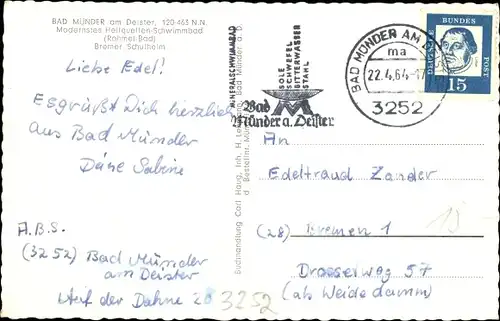 BAD MÜNDER am Deister, 120-463 N.N.
Modernstes Heilquellen-Schwimmbad
(Rohmel-Bad)
Bremer Schulheim
Liebe Edel!
Es grüßt Dich herzlich
aus Bad Münder
Deine Sabine
A.B.S.
(3252) Bad Münder
am Deister
Auf der Dahne 20
3252
Buchhandlung Carl Haug, Inh. H.
MINERALSCHWIMMBAD
SOLE
SCHWEFEL
BITTERWASSER
STAHL
Bad
Münder a. Deister
BAD MÜNDER AM
ma
22.4.64-17
3252
DEUTSCHE
BUNDES
POST
15
An
Edeltraud Zander
(28) Bremen 1
Drosselweg 57
(ab Weidedamm)
15